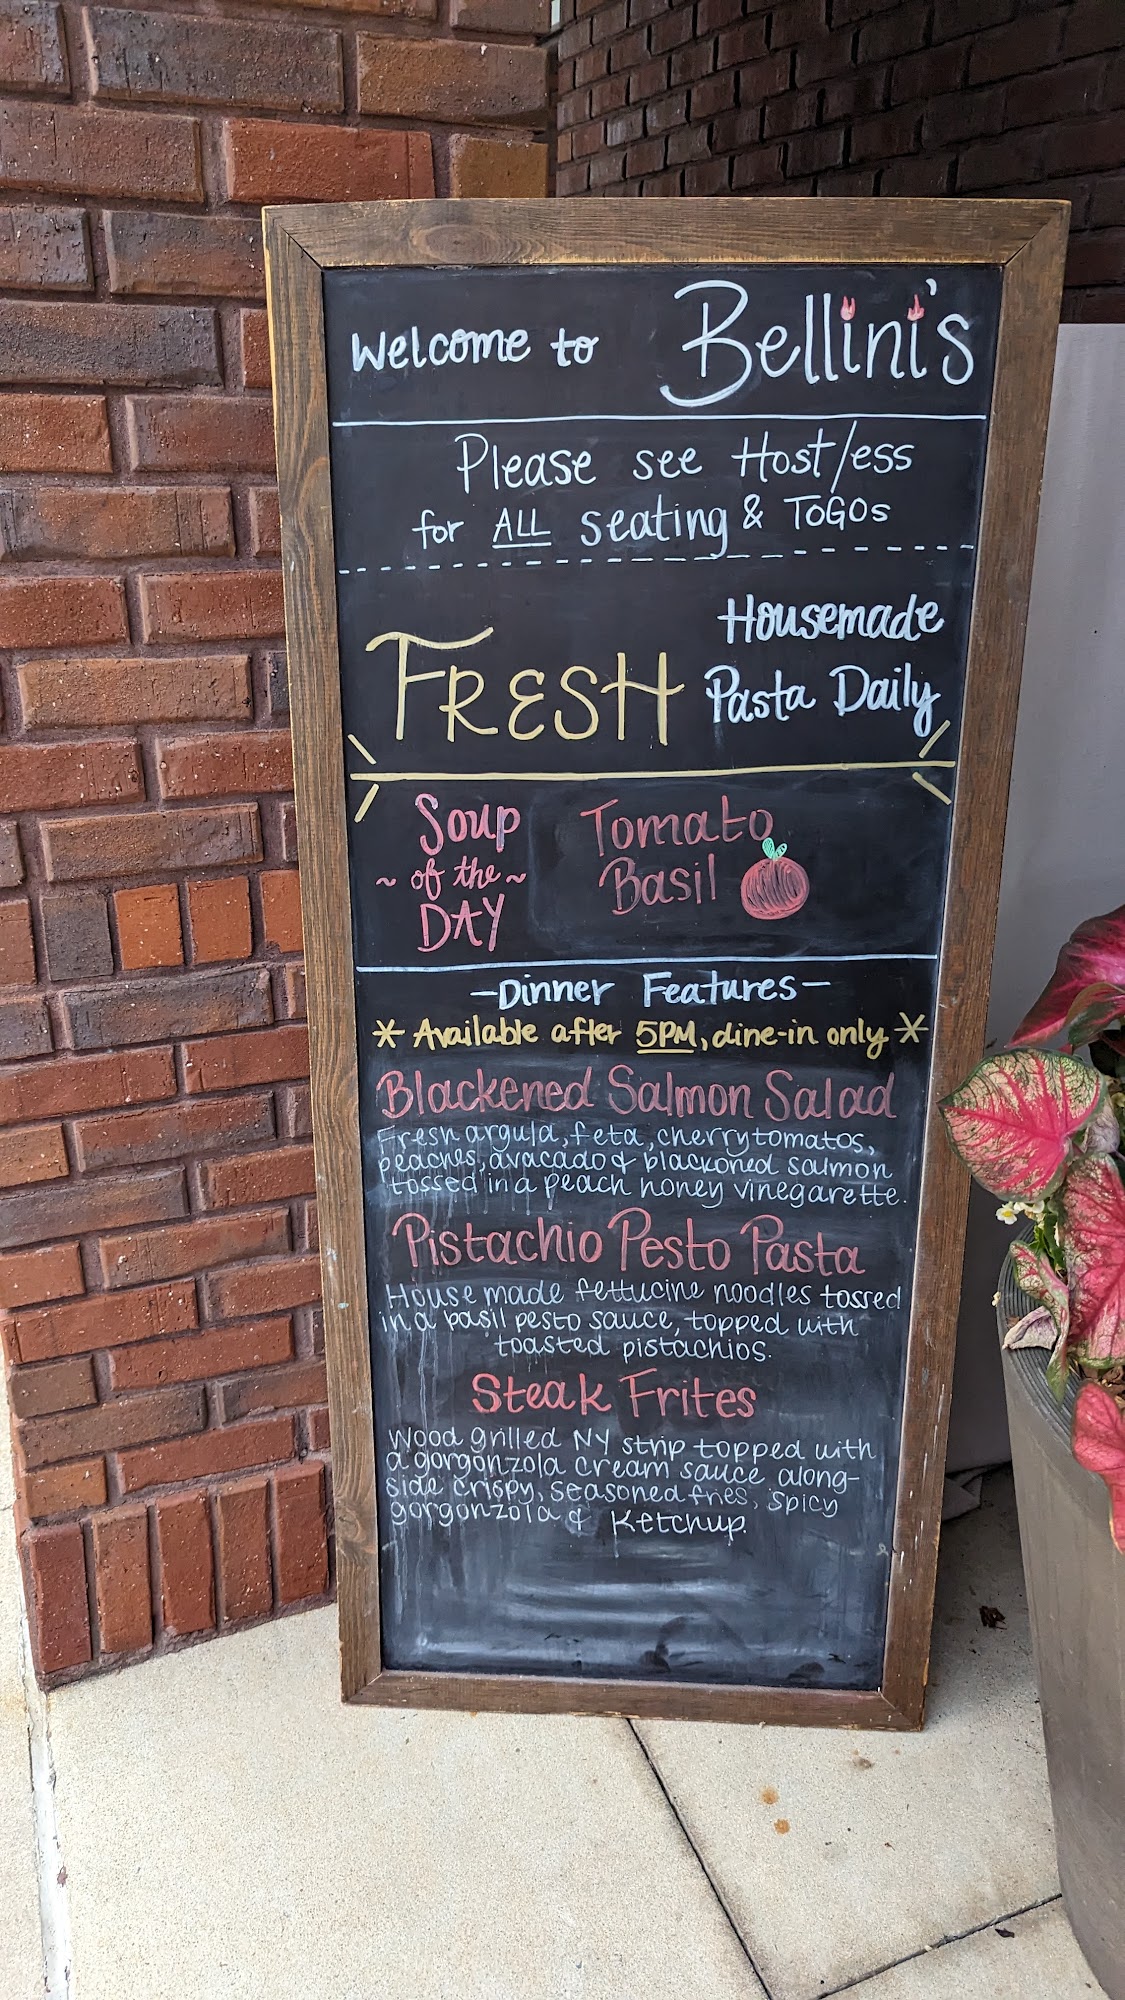 Welcome to Bellini's
Please see Host/ess
for ALL seating & ToGOs
FRESH
Housemade
Pasta Daily
Soup
~ of the ~
DAY
Tomato
Basil
-Dinner Features-
* Available after 5PM, dine-in only *
Blackened Salmon Salad
Fresh argula, feta, cherry tomatos,
peaches, avacado & blackoned salmon
tossed in a peach honey vinegarette.
Pistachio Pesto Pasta
House made fettucine noodles tossed
in a basil pesto sauce, topped with
toasted pistachios.
Steak Frites
Wood grilled NY strip topped with
a gorgonzola cream sauce along-
side crispy, seasoned fries, spicy
gorgonzola & Ketchup.